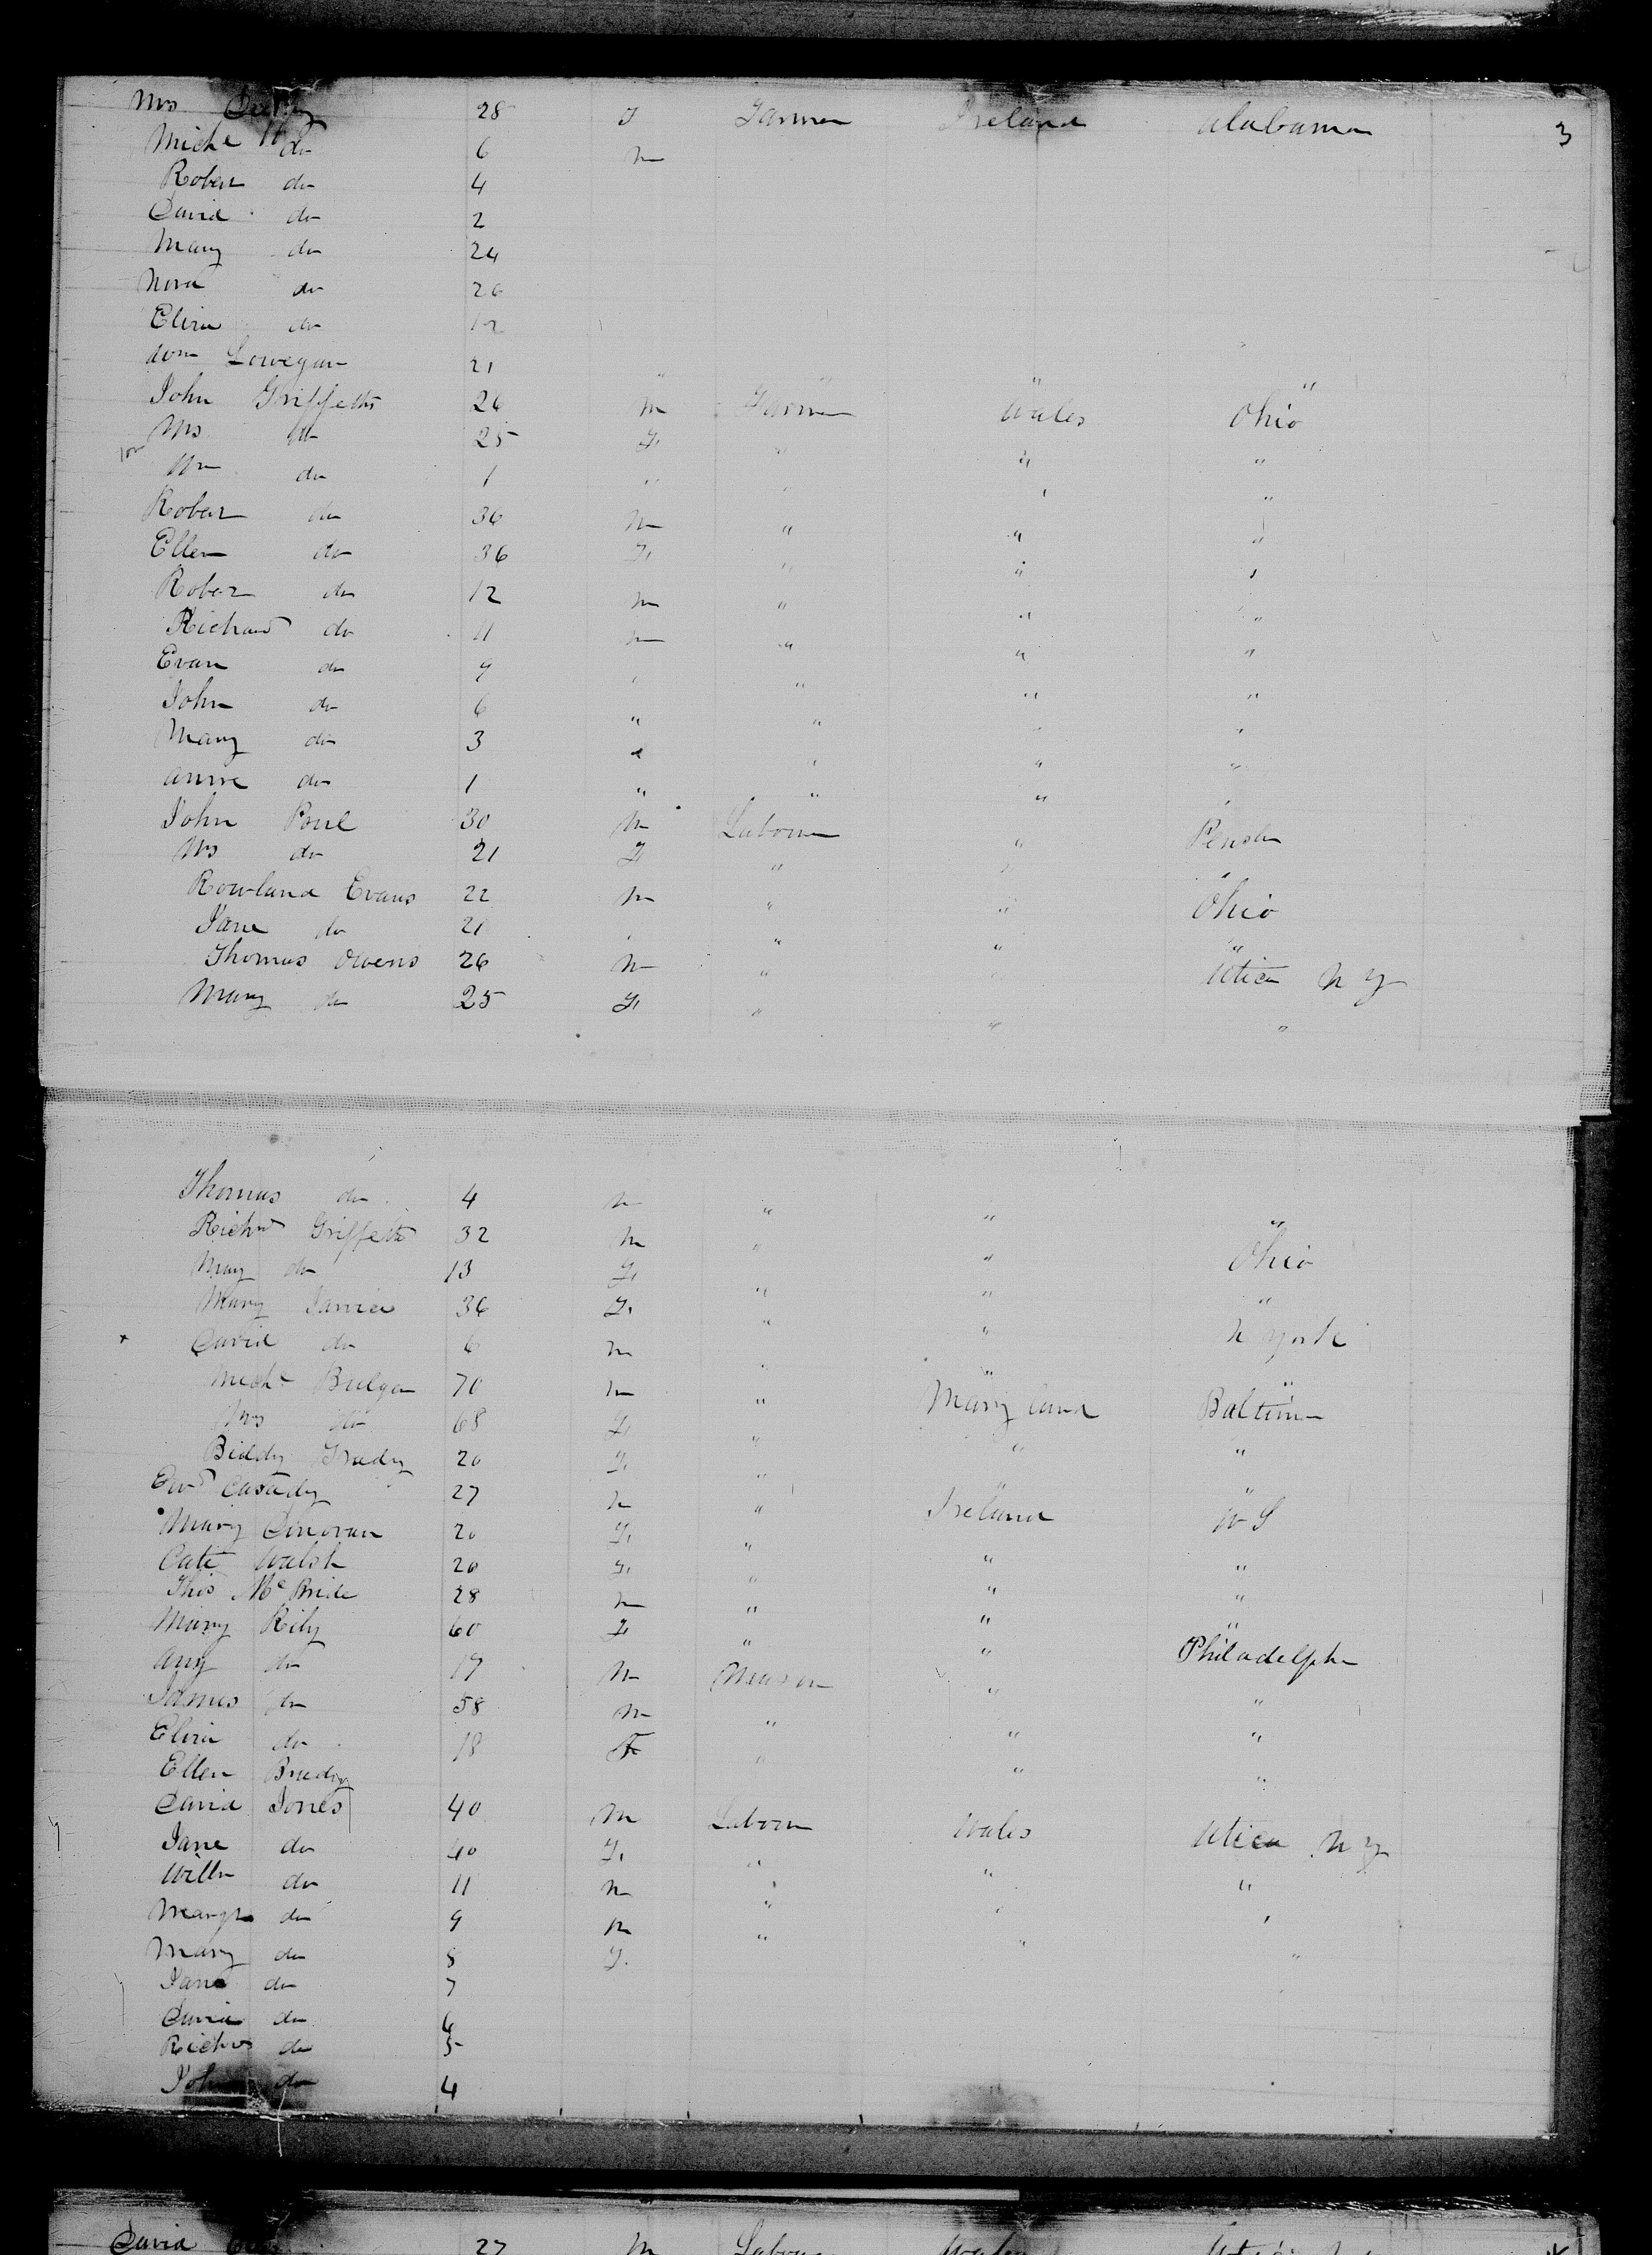 Mrs 28 F Farmer Ireland Alabama 3
Michl do 6 m
Robert do 4
David do 2
Mary do 24
Nora do 26
Eliza do 12
Wm Lowegan 21 " " " "
John Griffeths 26 m Farmer Wales Ohio
Mrs do 25 F " " "
Wm do 1 " " " "
Robert do 36 m " " "
Ellen do 36 F " " "
Robert do 12 m " " "
Richard do 11 m " " "
Evan do 9 " " " "
John do 6 " " " "
Mary do 3 " " " "
Annie do 1 " " " "
John Poul 30 m Laborer " Pensa
Mrs do 21 F " "
Rowland Evans 22 m " " Ohio
Jane do 21 " " " "
Thomas Owens 26 m " Utica N Y
Mary do 25 F " " "
Thomas do 4 m " " "
Richd Griffeth 32 m " " Ohio
Mary do 13 F " " "
Mary 36 F " " N York
David do 6 m " " "
Michl 70 m " Mary land Baltim
Mrs do 68 F " " "
Biddy Grady 20 F " "
Edwd Casady 27 m " Ireland U S
Mary Donovan 20 F " " "
Cate Walsh 20 F " " "
Thos McBride 28 m " " "
Mary Rily 60 F " " Philadelpha
do 19 m Meason " "
James do 58 m " " "
Eliza do 18 F " " "
Ellen Brady
David Jones 40 m Laborer Wales Utica N Y
Jane do 40 F " " "
Willm do 11 m " " "
Margt do 9 m " " "
Mary do 8 F
Jane do 7
David do 6
Richd do 5
John do 4
David 27 m Labour Wales Utica